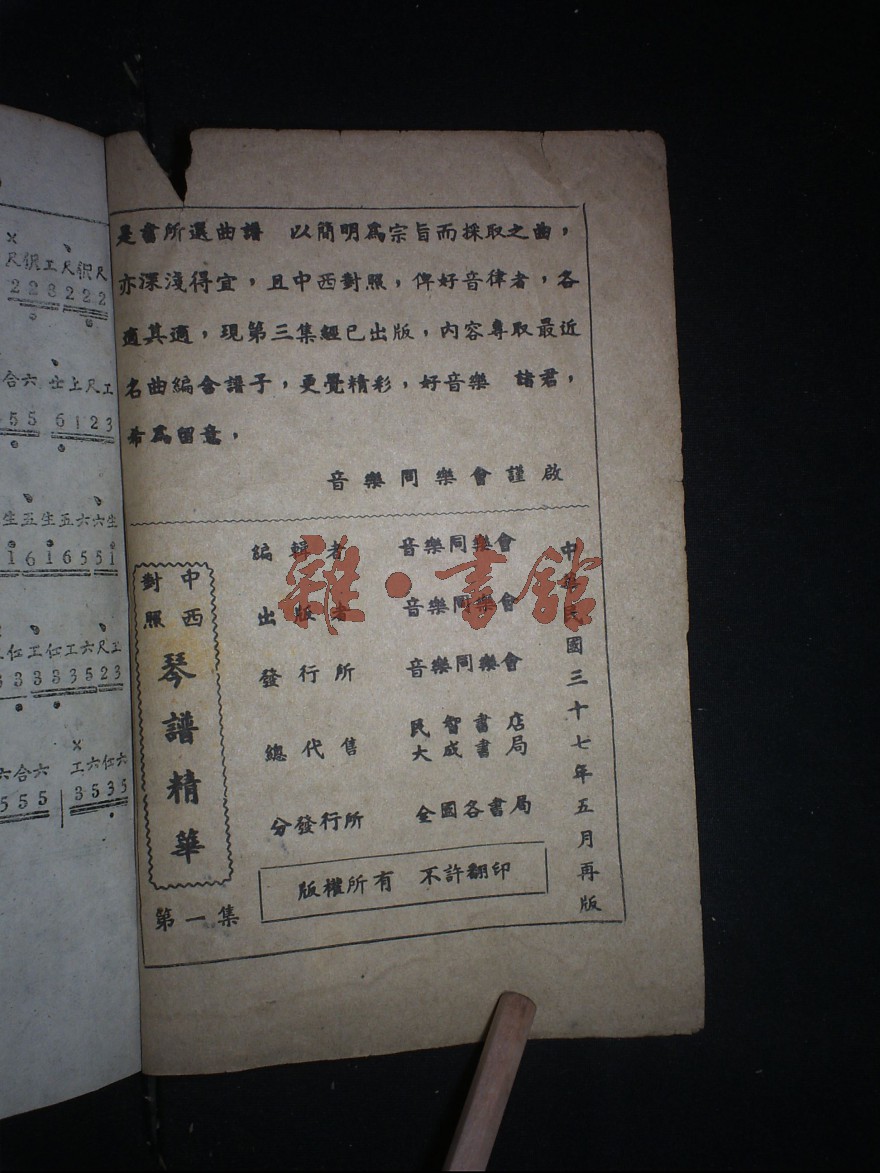 是書所選曲譜　以簡明爲宗旨而採取之曲，
亦深淺得宜，且中西對照，俾好音律者，各
適其適，現第三集經已出版，內容專取最近
名曲編合譜子，更覺精彩，好音樂　諸君，
希爲留意，
音樂同樂會謹啟
中華民國三十七年五月再版
編輯者　音樂同樂會
出版者　音樂同樂會
發行所　音樂同樂會
總代售　民智書店
大成書局
分發行所　全國各書局
版權所有　不許翻印
中西
對照
琴譜精華
第一集
雜·書館
2 2 3 2 2 2
合六 仕上尺工
5 5 6 1 2 3
生五生五六六生
1 6 1 6 5 5 1
仁工仕工六尺工
3 3 3 3 5 2 3
六合六 工六仕六
5 5 5 3 5 3 5